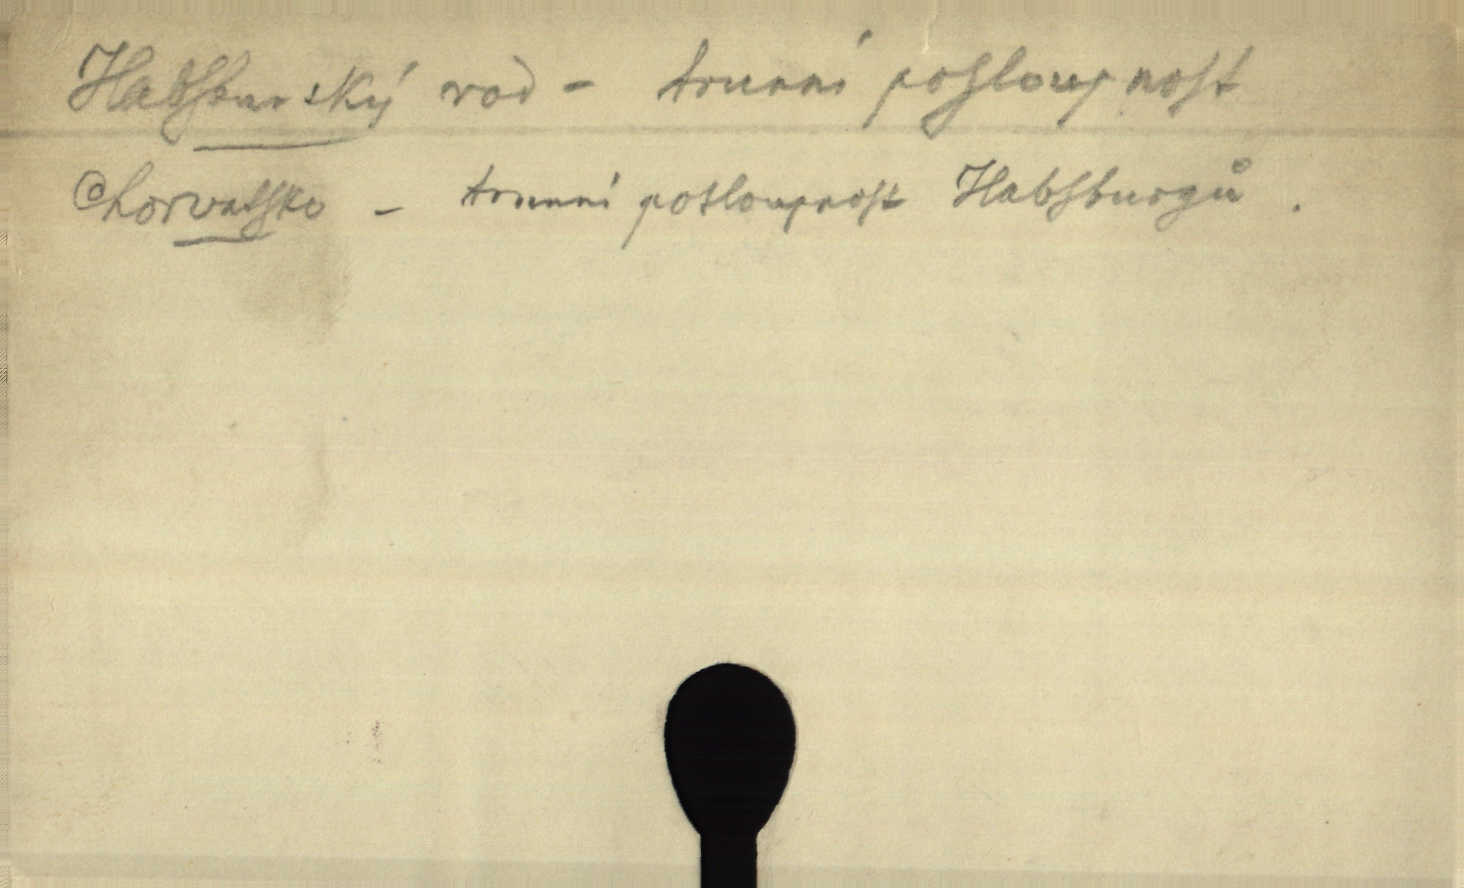 Habsburský rod - trunní posloupnost
Chorvatsko - trunní posloupnost Habsburgů .